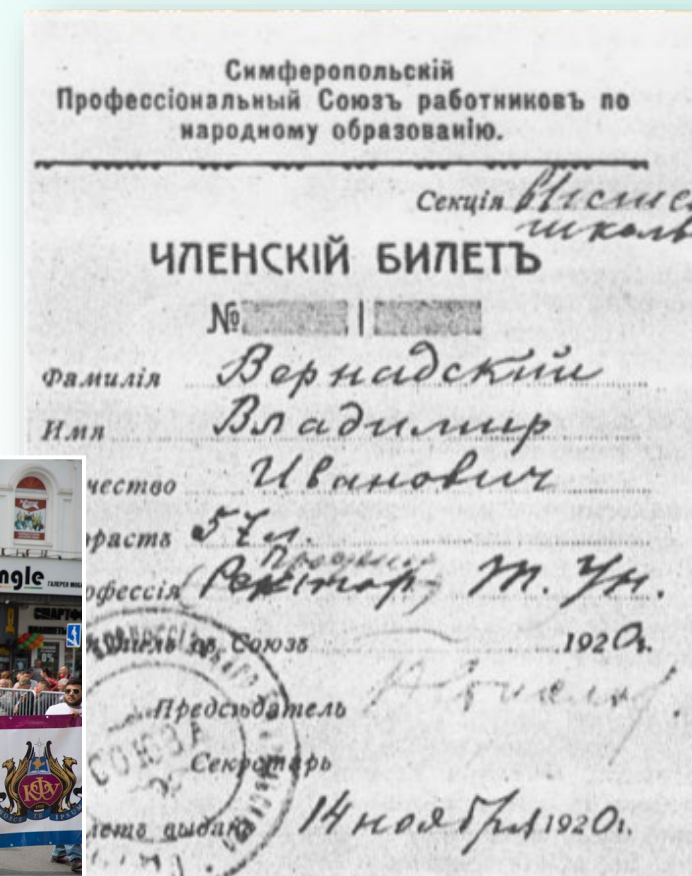 Симферопольскій
Профессіональный Союзъ работниковъ по
народному образованію.
Секція высшей
школы
ЧЛЕНСКІЙ БИЛЕТЪ
№
Фамилія Вернадский
Имя Владимир
чество Иванович
зрастъ 57 л.
офессія (Ректор) Т. Ун.
Союзъ 1920г.
Предсѣдатель
Секретарь
выданъ 14 ноября 1920г.
СОЮЗА
ngle
КФУ